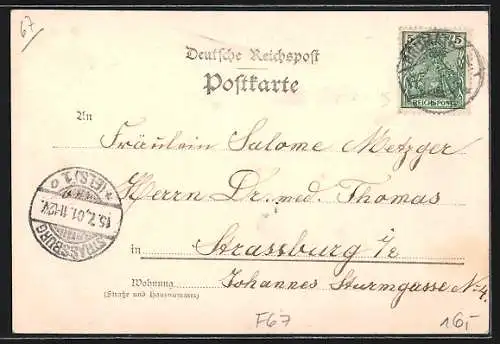 67
Deutsche Reichspost
Postkarte
5 5
REICHSPOST
An
Fräulein Salome Metzger
Herrn Dr. med. Thomas
in Strassburg i/e
Wohnung Johannes Sturmgasse No 4.
(Straße und Hausnummer)
STRASSBURG
15.7.01.11-12V.
*(ELS)1 o
F67
16,-